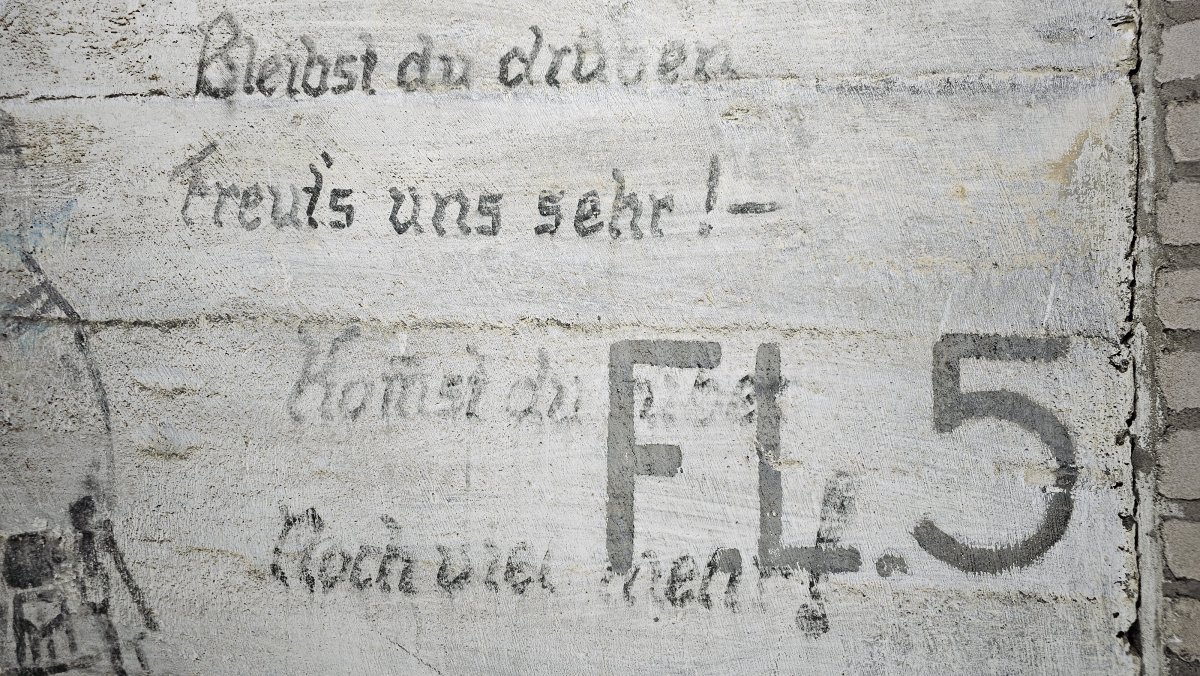 Bleibst du drüben
Freut's uns sehr! –
Komst du rüber
Noch viel mehr!
F.L.5